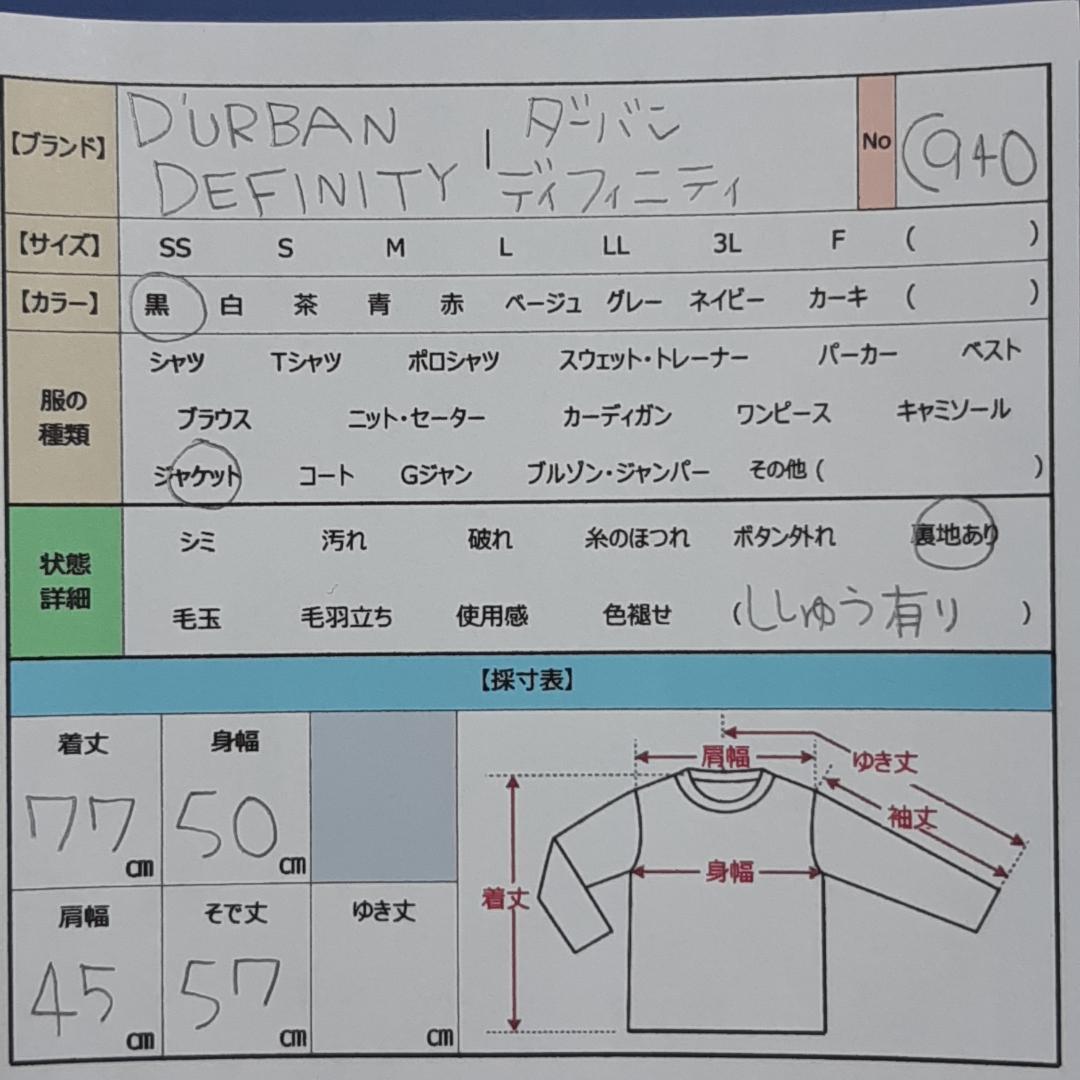 【ブランド】 D'URBAN ダーバン No C940
DEFINITY ディフィニティ
【サイズ】 SS S M L LL 3L F ( )
【カラー】 黒 白 茶 青 赤 ベージュ グレー ネイビー カーキ ( )
服の種類
シャツ Tシャツ ポロシャツ スウェット・トレーナー パーカー ベスト
ブラウス ニット・セーター カーディガン ワンピース キャミソール
ジャケット コート Gジャン ブルゾン・ジャンパー その他 ( )
状態詳細
シミ 汚れ 破れ 糸のほつれ ボタン外れ 裏地あり
毛玉 毛羽立ち 使用感 色褪せ (ししゅう有り)
【採寸表】
着丈 身幅
77cm 50cm
肩幅 そで丈 ゆき丈
45cm 57cm cm
肩幅 ゆき丈
袖丈
身幅
着丈